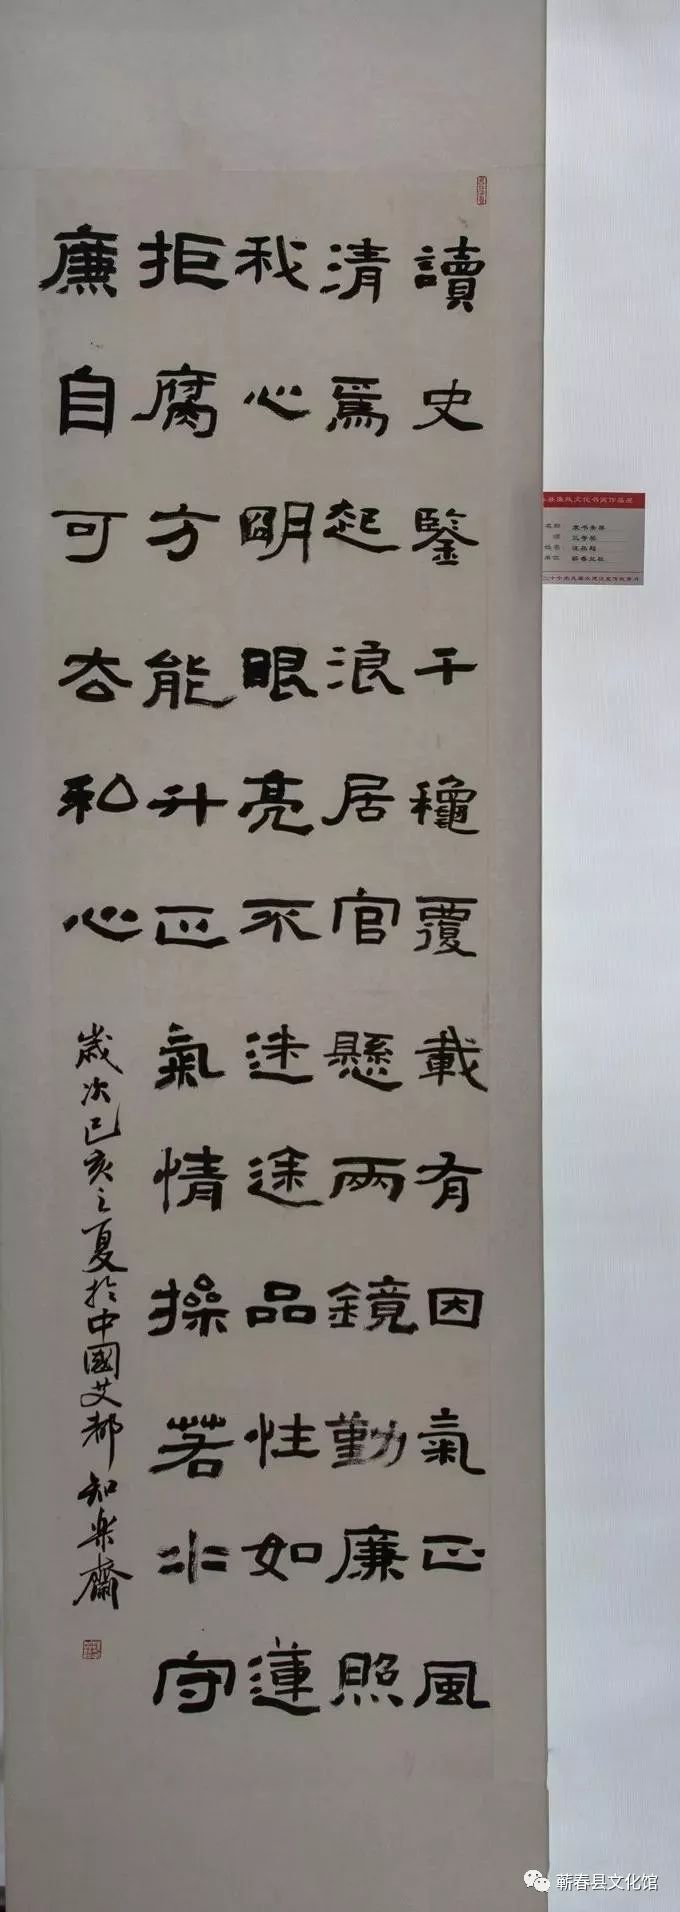 讀史鑒千龝覆載有因氣正風
清爲起浪居官懸兩鏡勤廉照
我心明眼亮不迷途品性如蓮
拒腐方能升正氣情操若水守
廉自可去私心
歲次己亥之夏於中國艾都知樂齋
蕲春县文化馆